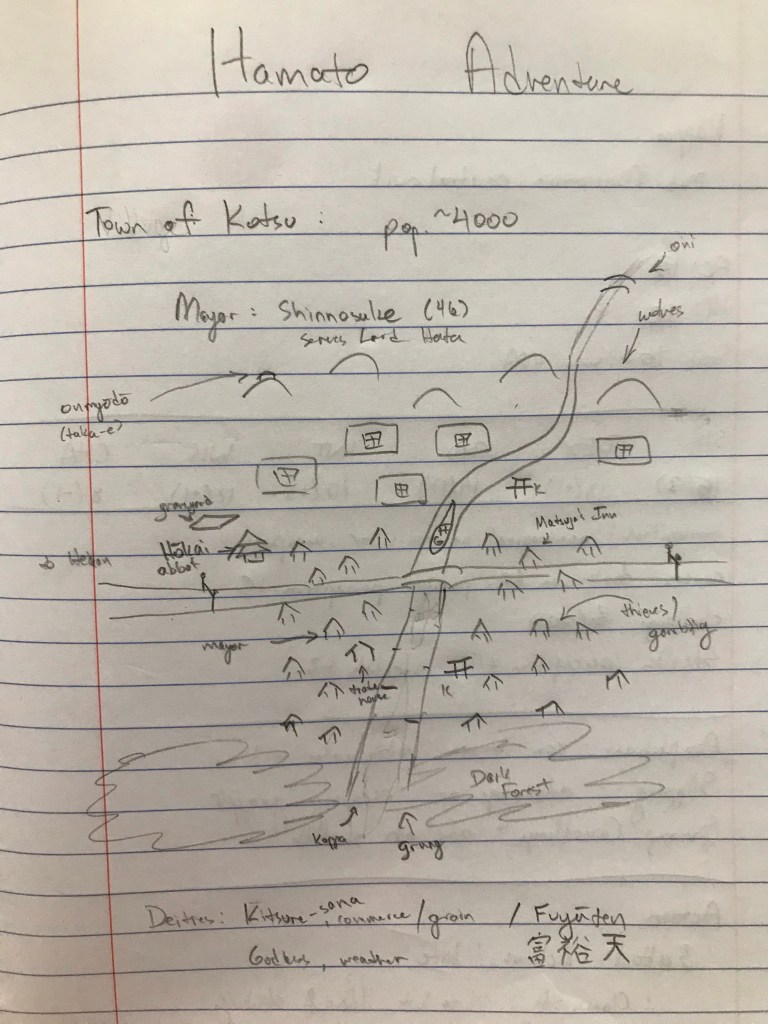 Hamato Adventure
Town of Kotsu : pop. ~4000
oni
Mayor : Shinnosuke (46)
serves Lord Hata
wolves
onmyōdō
(taka-e)
K
graveyard
Matsuya's Inn
Hōkai
abbot
thieves/
gambling
mayor
K
Dark
Forest
Kappa
grung
Deities: Kitsune-sama, commerce/grain / Fuyūten
富裕天
weather